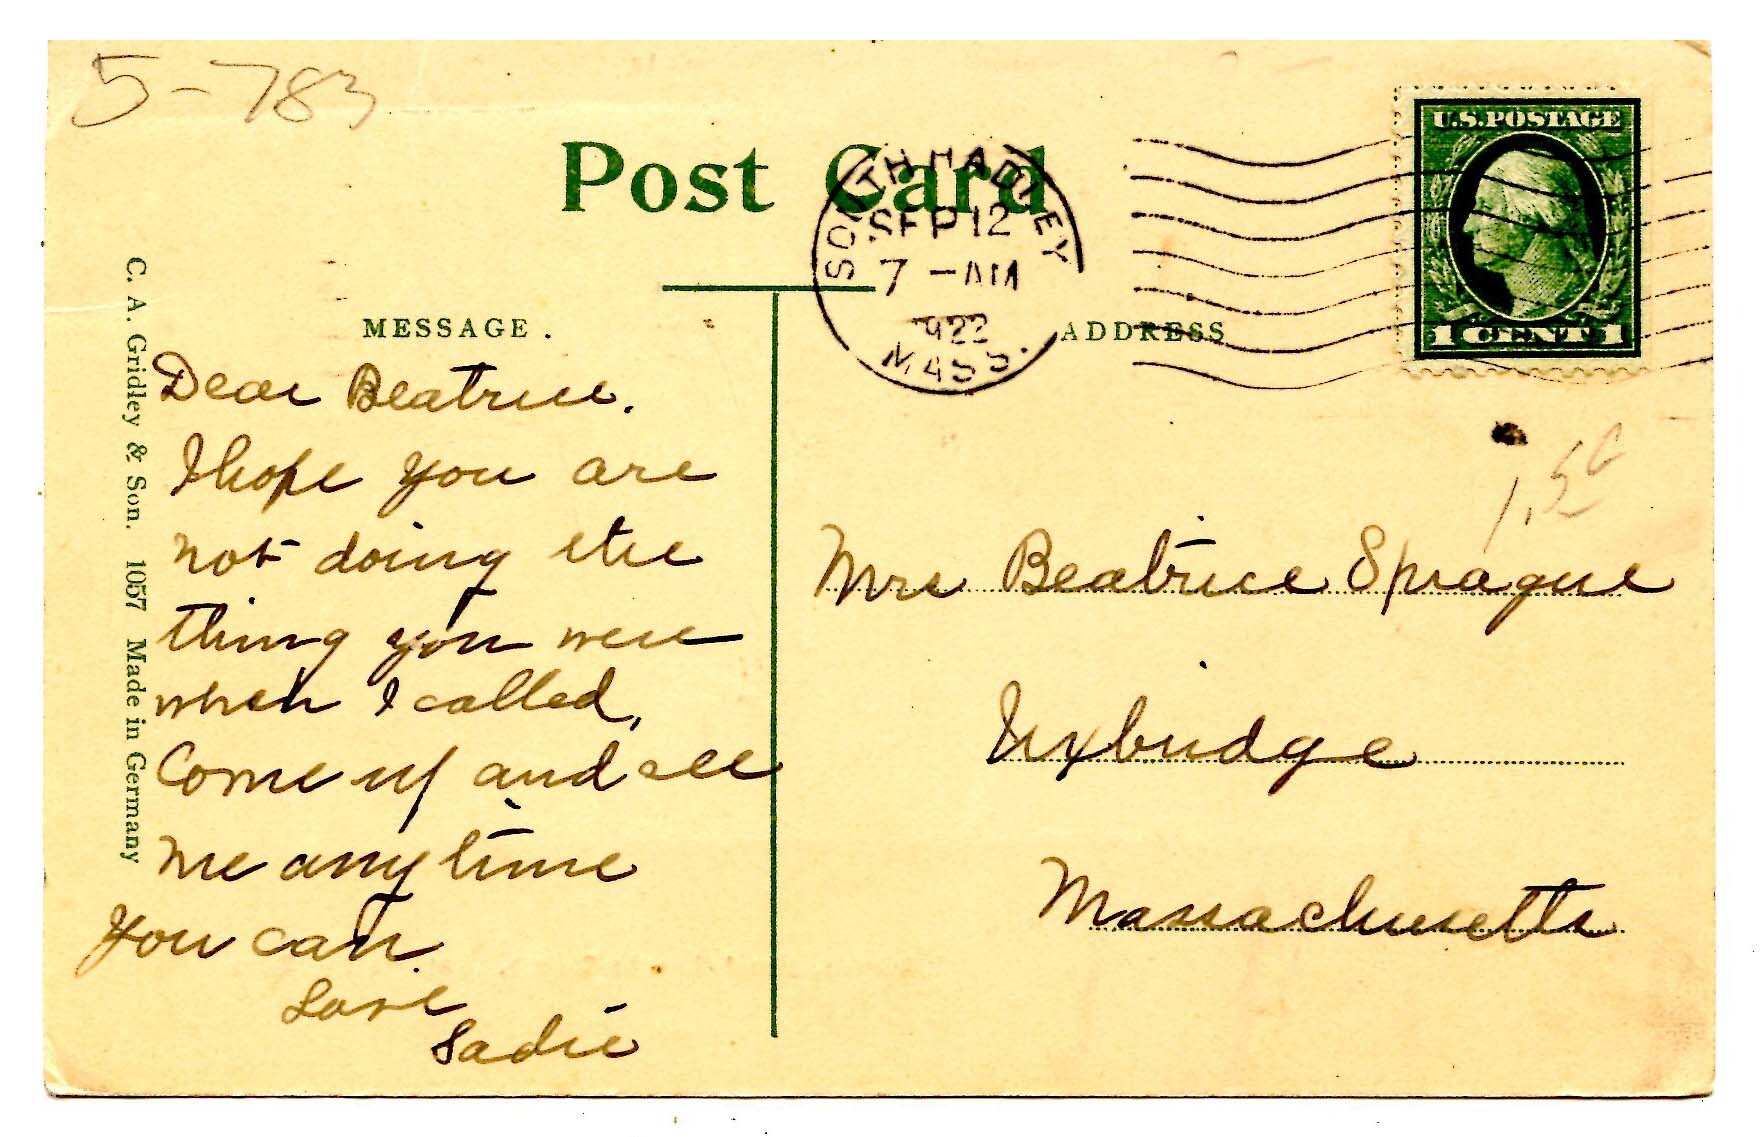 5-783
Post Card
SOUTH HADLEY
SEP 12
7-AM
1922
MASS.
U.S. POSTAGE
1 CENT 1
MESSAGE.
ADDRESS
C. A. Gridley & Son. 1057 Made in Germany
Dear Beatrice.
I hope you are
not doing the
thing you were
when I called,
Come up and see
me anytime
You can.
Love
Sadie
1.50
Mrs Beatrice Sprague
Uxbridge
Massachusetts